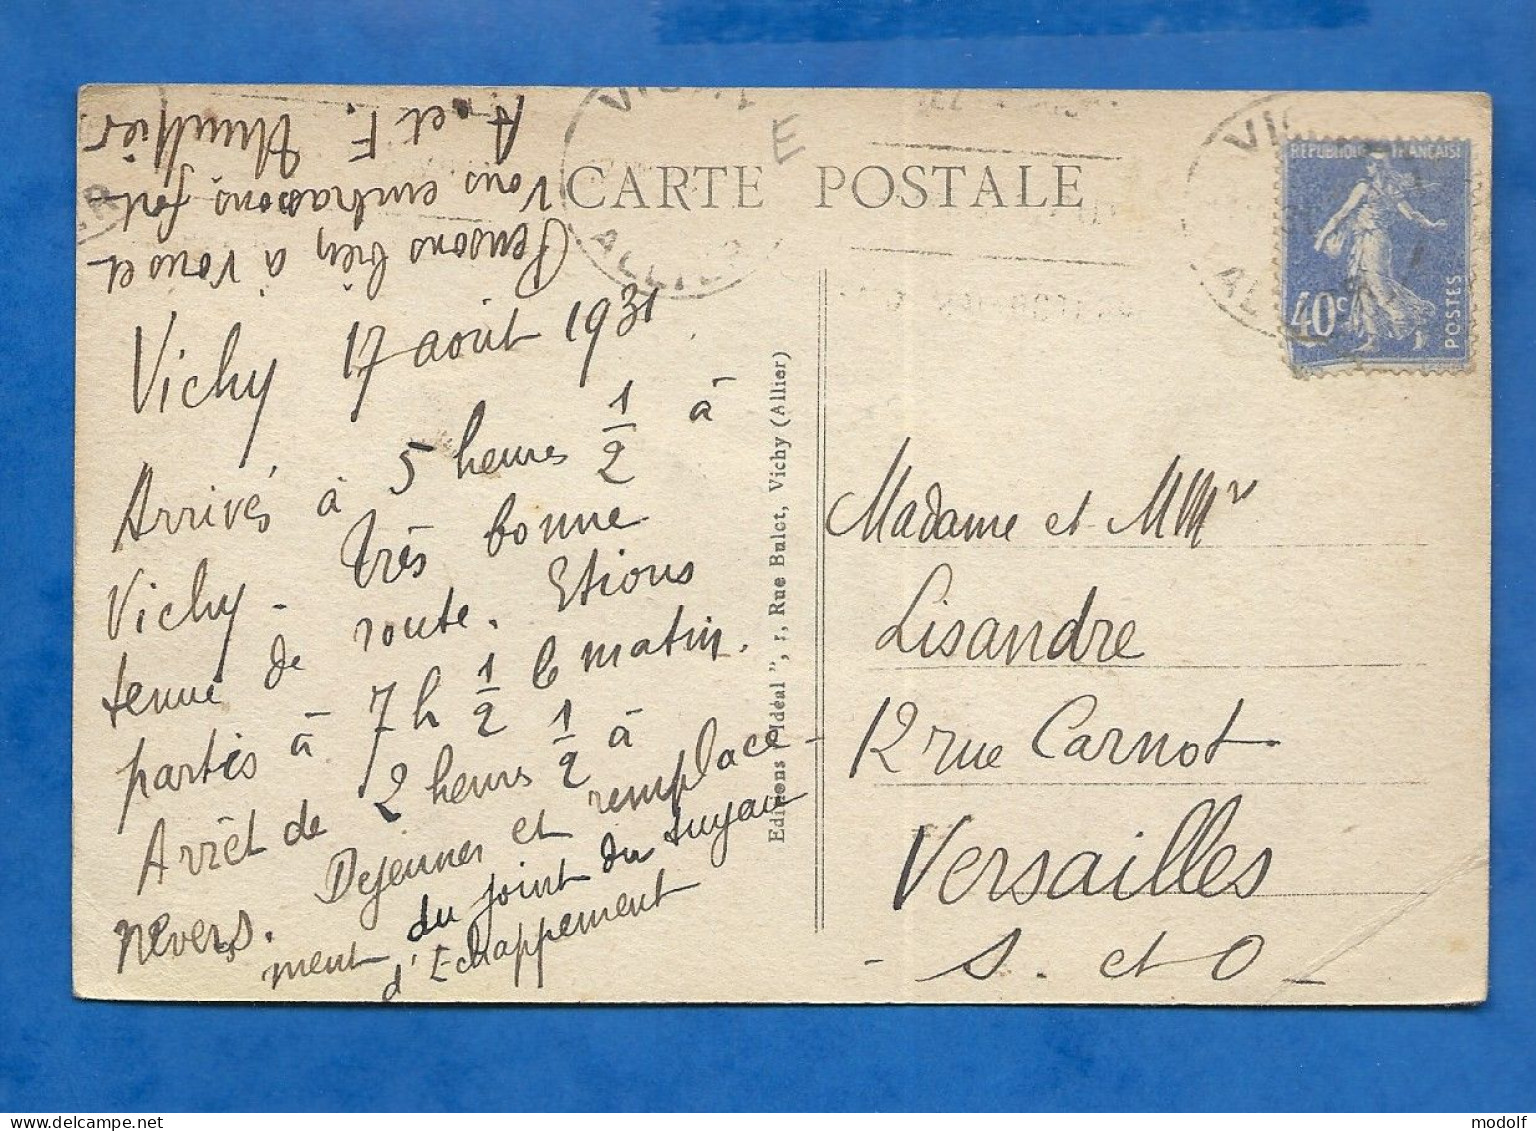 CARTE POSTALE
E
VICHY
ALLIER
REPUBLIQUE FRANCAISE
40c
POSTES
Vichy 17 août 1931
Arrivés à 5 heures 1/2 à
Vichy - très bonne
tenue de route. Etions
partis à 7 h 1/2 le matin.
Arrêt de 2 heures 1/2 à
nevers. Dejeuner et remplace-
ment du joint du tuyau
d'Echappement
Pensons bien à vous et
vous embrassons fort
A. et F.
Editions "Idéal", 1, Rue Bulot, Vichy (Allier)
Madame et Mr
Lisandre
12 rue Carnot
Versailles
- S. et O -
modolf